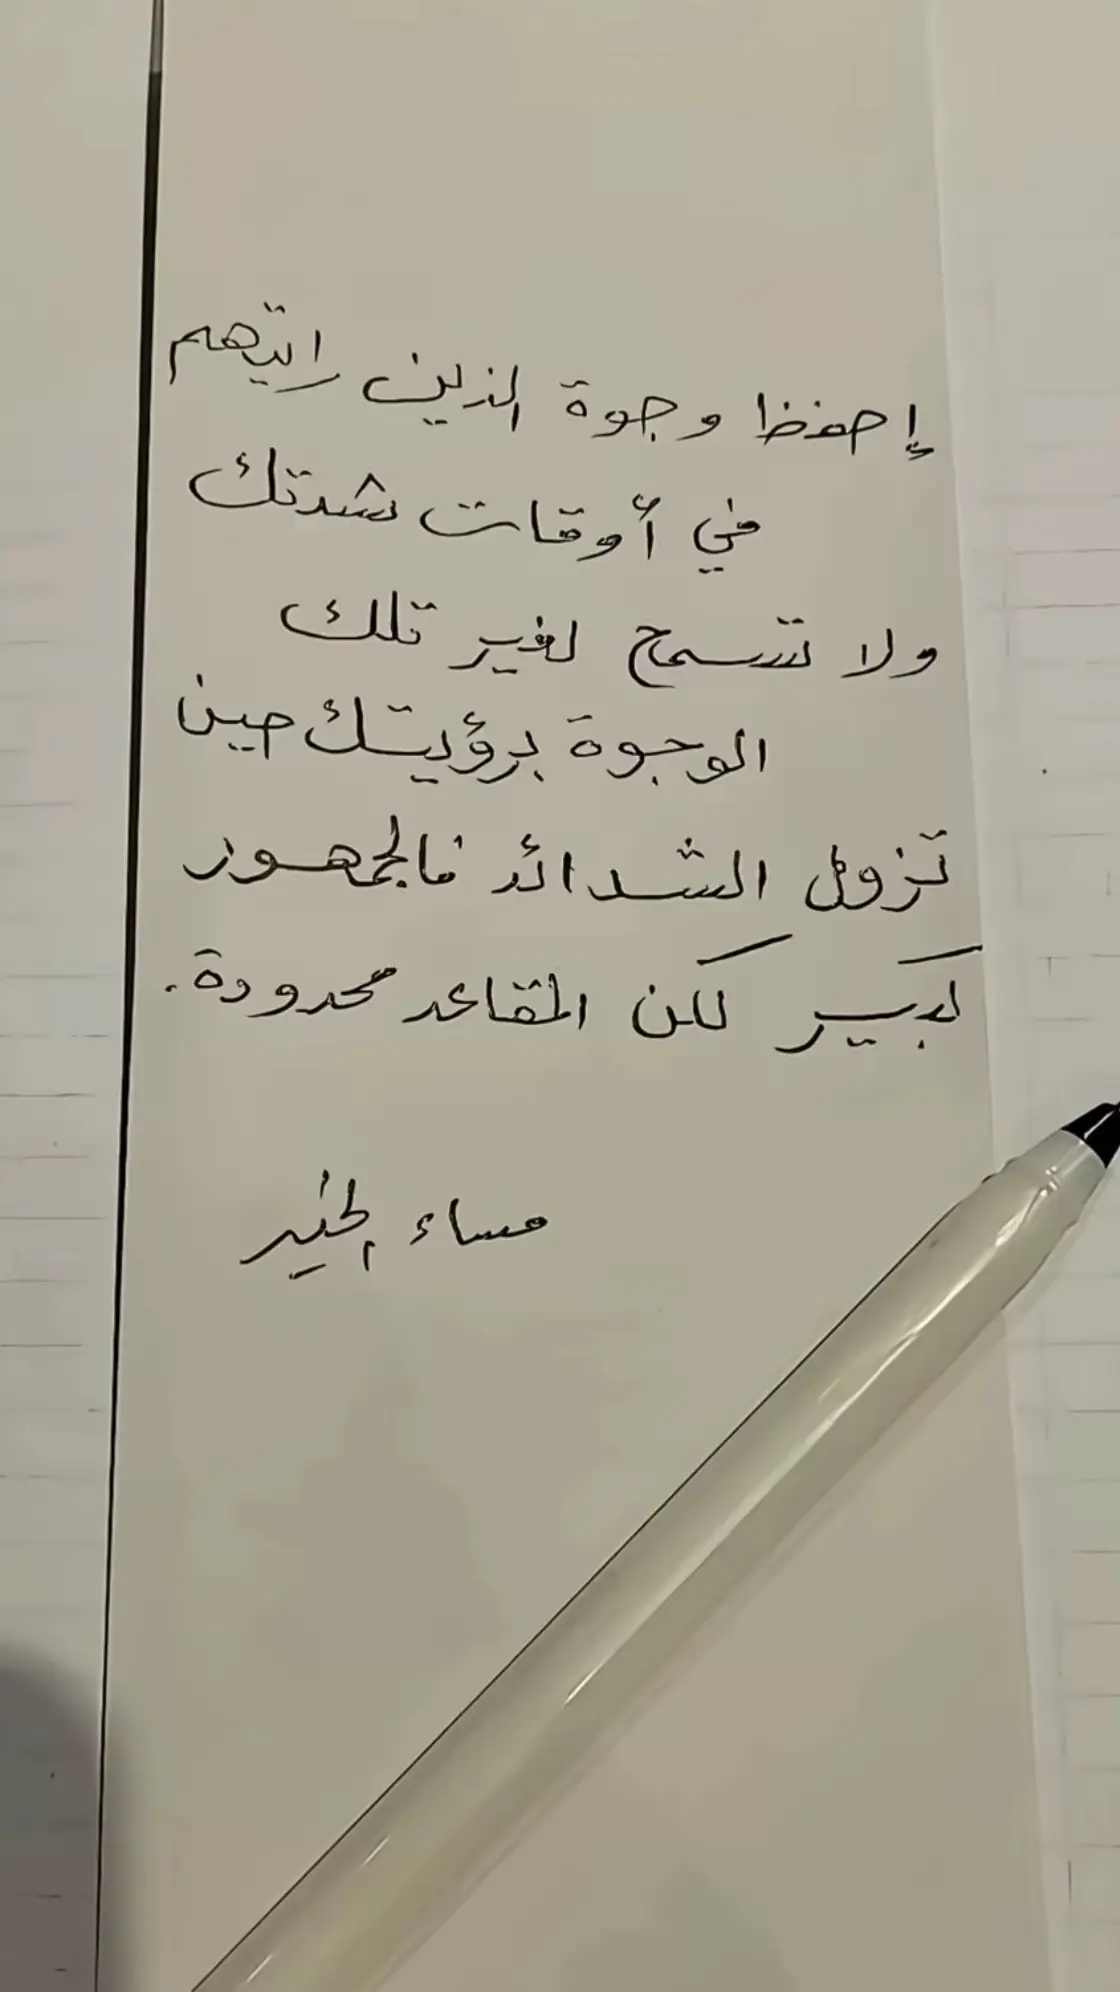 إحفظ وجوة الذين رايتهم
في أوقات شدتك
ولا تسمح لغير تلك
الوجوة برؤيتك حين
تزول الشدائد فالجمهور
كبير لكن المقاعد محدودة.
مساء الخير